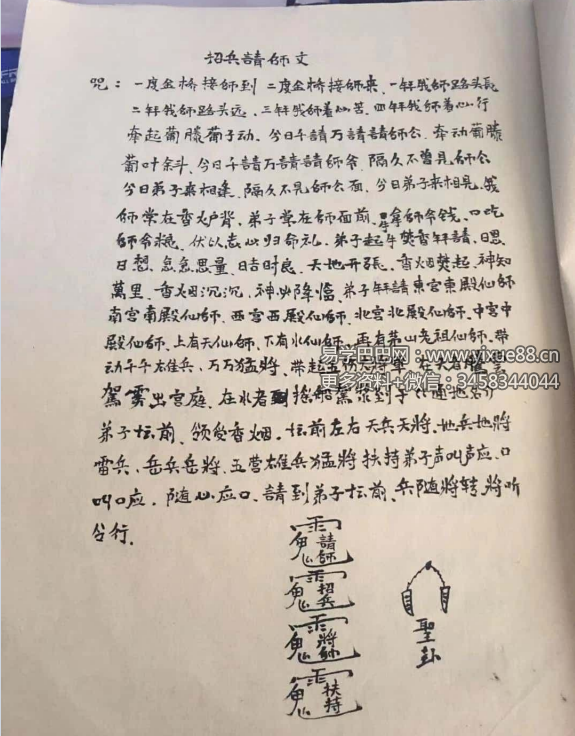 招兵請師文
咒：一度金桥接師到 二度金桥接師来，一拜我師路头長
二拜我師路头远，三拜我師着心苦，四拜我師着心行
牵起葡藤葡子动，今日千請万請請師公，牵动葡藤
葡叶余斗，今日千請万請請師爷，隔久不曾見師公
今日弟子来相逢，隔久不見師公面，今日弟子来相見，我
師常在香火炉背，弟子常在師面前，手拿師爷钱，口吃
師爷粮，伏以志心归命礼，弟子起手焚香拜請，日思
日想，急急思量，日吉时良，天地开張，香烟焚起，神知
萬里，香烟沉沉，神必降临，弟子拜請東宫東殿仙師
南宫南殿仙師，西宫西殿仙師，北宫北殿仙師，中宫中
殿仙師，上有天仙師，下有水仙師，再有茅山老祖仙師，带
动千千雄兵，万万猛將，带起五
易学巴巴网：www.yixue88.cn
更多资料+微信：3458344044
駕雾出宫庭，在水者
弟子坛前，领受香烟，坛前左右天兵天將，地兵地將
雷兵，岳兵岳將，五营雄兵猛將 扶持弟子声叫声应，口
叫口应，随心应口，請到弟子坛前，兵随將转，將听
令行。
請師
招兵
將師
扶持
聖卦